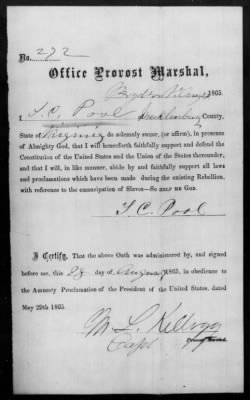 No. 272
Office Provost Marshal,
Boydton Va 1865.
I S. C. Pool Mecklenburg County,
State of Virginia do solemnly swear, (or affirm), in presence
of Almighty God, that I will henceforth faithfully support and defend the
Constitution of the United States and the Union of the States thereunder,
and that I will, in like manner, abide by and faithfully support all laws
and proclamations which have been made during the existing Rebellion,
with reference to the emancipation of Slaves—SO HELP ME GOD.
S C. Pool
I Certify, That the above Oath was administered by, and signed
before me, this 28 day of August 1865, in obedience to
the Amnesty Proclamation of the President of the United States, dated
May 29th 1865.
M L. Kellogg
Capt Provost Marshal.